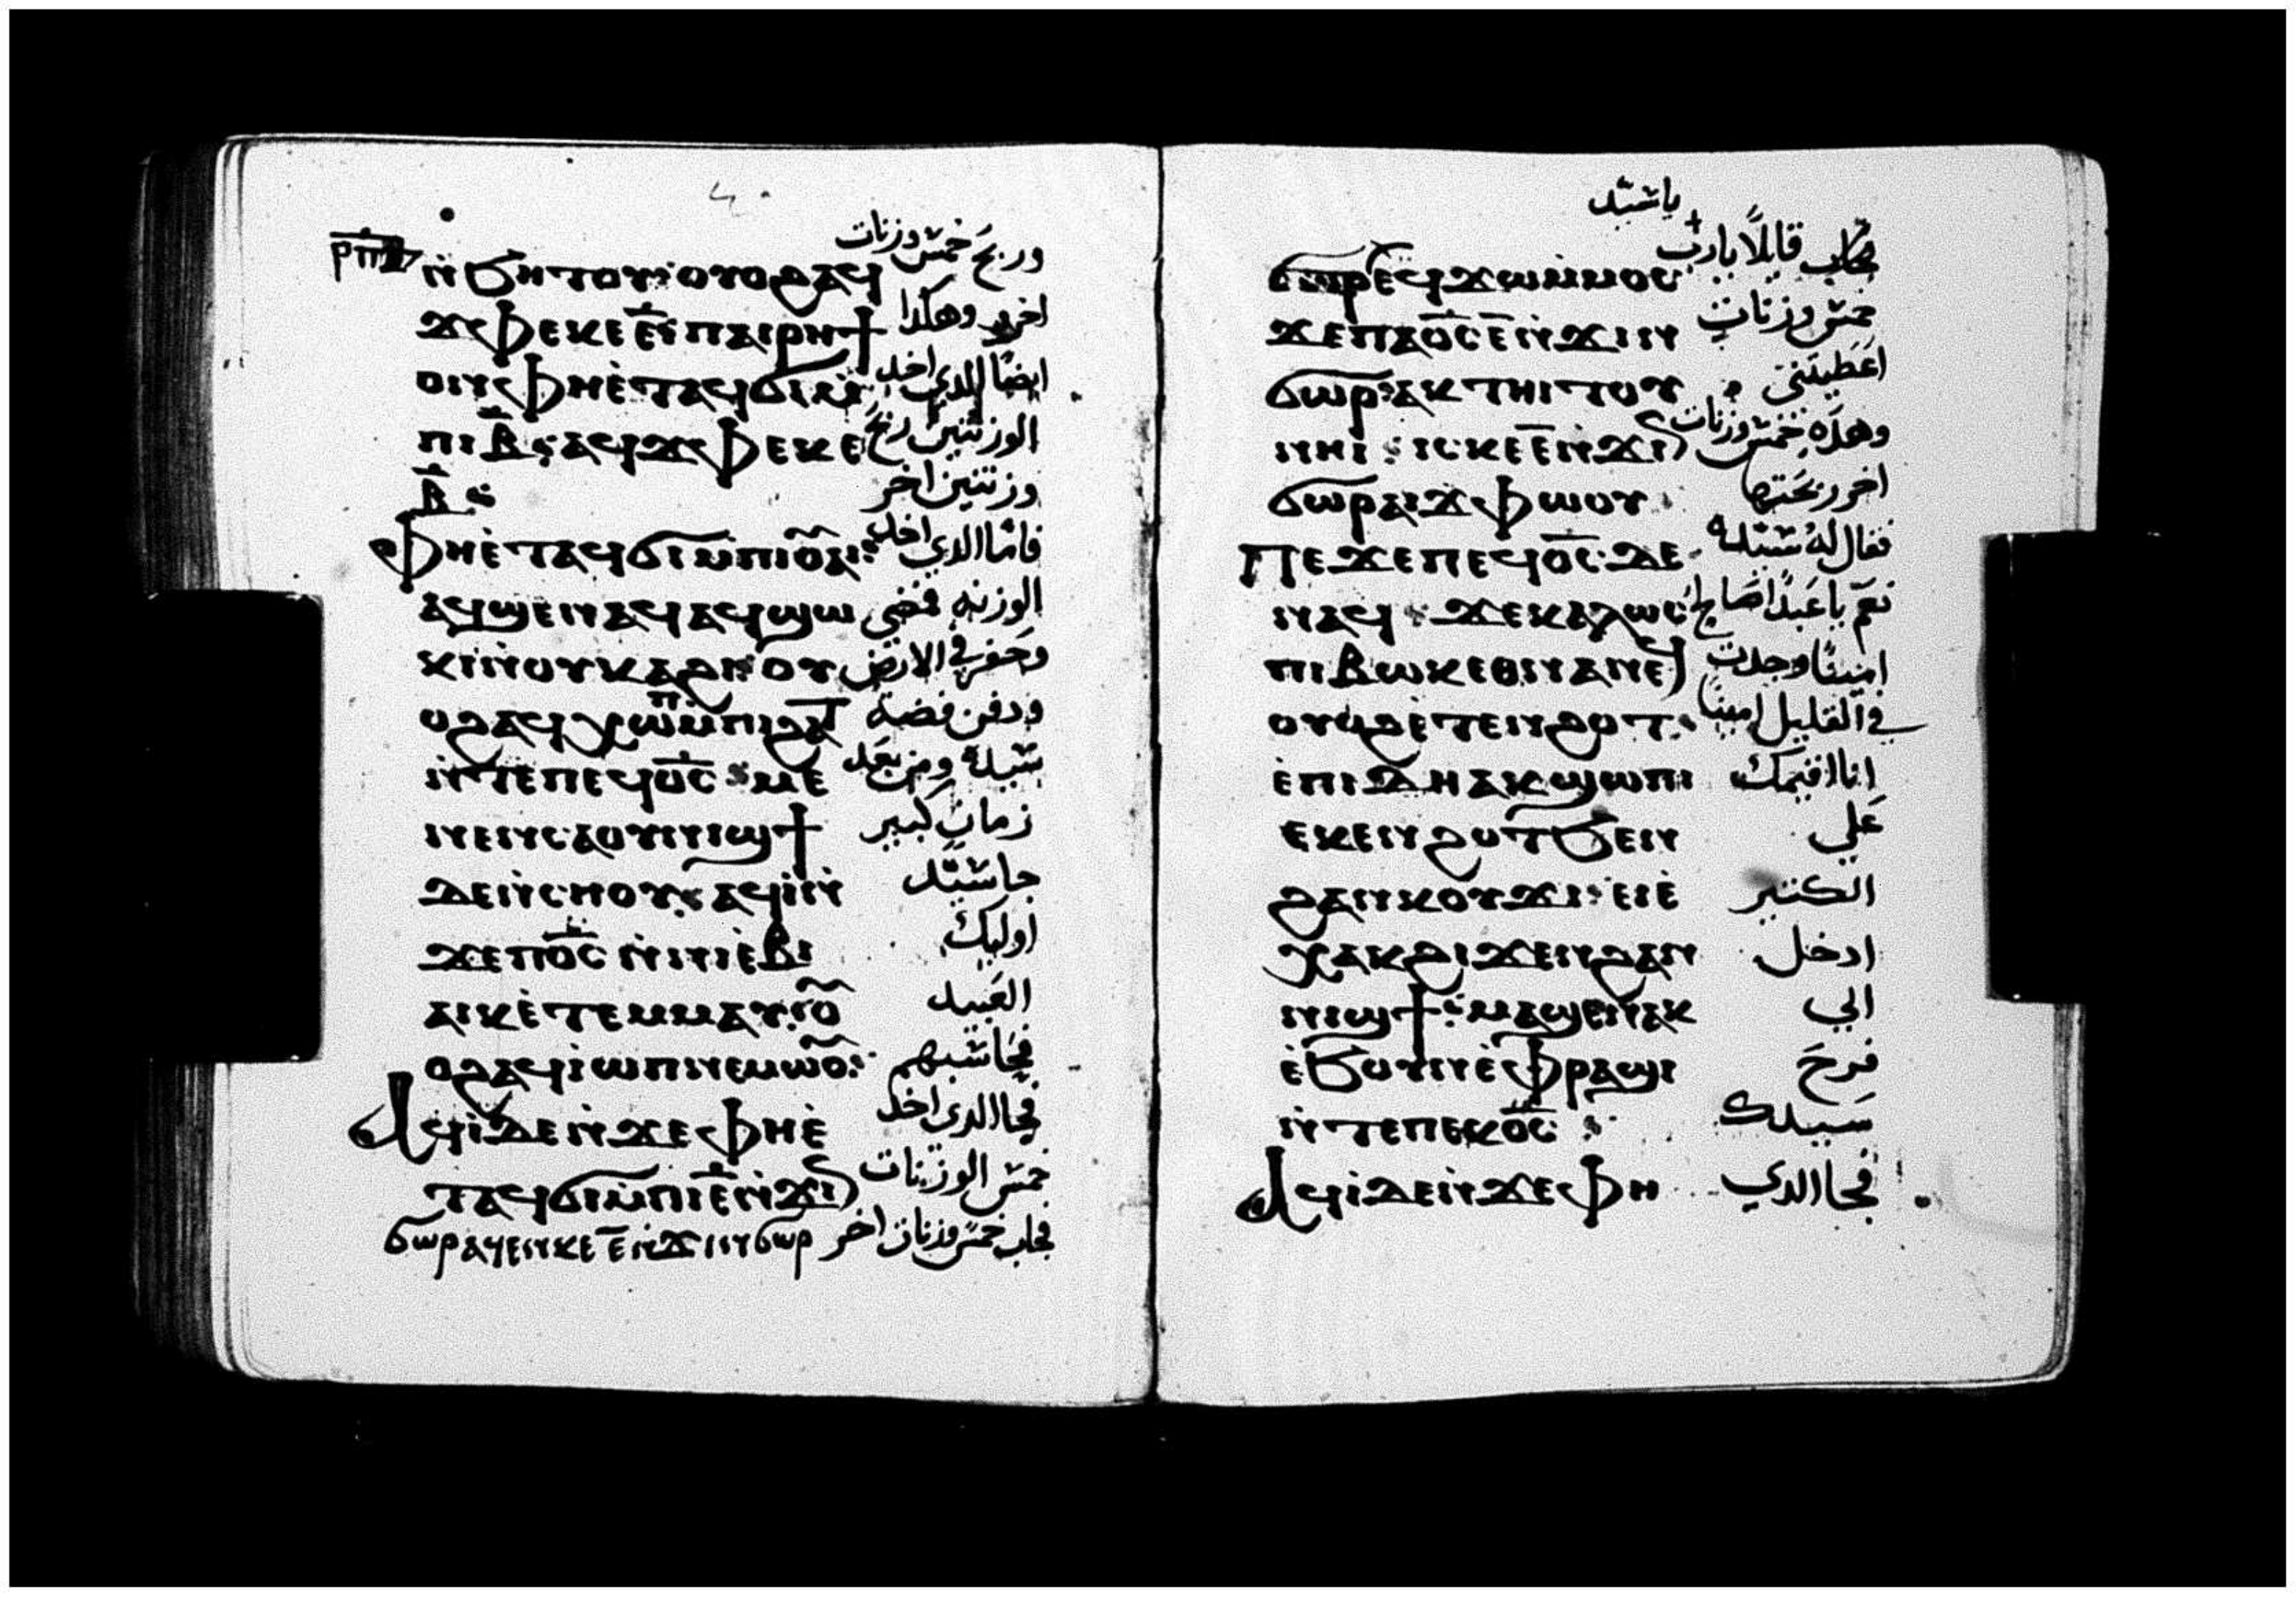 ⲛ̇ϧⲏⲧⲟⲩ ⲟⲩⲟϩⲁϥ وربح خمس وزنات
ϫⲫⲉⲕⲉⲉ̅ ⲡⲁⲓⲣⲏϯ اخر وهكدا
ⲟⲛ ⲫⲏⲉ̀ⲧⲁϥϭⲓⲙ̀ ايضًا الدي اخد
ⲡⲓⲃ̅ ⲁϥϫⲫⲉⲕⲉ الوزنتين ربح
ⲃ̅ وزنتين اخر
ⲫⲏⲉ̀ⲧⲁϥϭⲓⲙ̀ⲡⲓⲟ̅ⲁⲓ فامّا الدي اخد
ⲁϥϣⲉⲛⲁϥ ⲁϥϣⲱ الوزنه فمضى
ⲕⲓ ⲛ̀ⲟⲩⲕⲁϩⲓ ⲟⲩ وحفر في الارض
ⲟϩⲁϥⲭⲱⲡ ⲙ̀ⲡⲓϩⲁⲧ ودفن فضة
ⲛ̀ⲧⲉⲡⲉϥⲟ̅ⲥ̅ ⲙⲉ سيده ومن بعد
ⲛⲉⲛⲥⲁⲟⲩⲛⲓϣϯ زمان كبير
ⲇⲉⲛ̀ⲥⲏⲟⲩ ⲁϥⲓ̀ⲛ̀ جا سيّد
ϫⲉⲡⲟ̅ⲥ̅ ⲛ̀ⲛⲓⲉ̀ⲃⲓ اوليك
ⲁⲓⲕ ⲉ̀ⲧⲉⲙⲙⲁⲩ ⲟ العبيد
ⲟϩⲁϥⲓ̀ⲱⲡ ⲛⲉⲙⲱⲟ فحاسبهم
ⲁϥⲓ̀ ⲇⲉ ⲛ̀ϫⲉⲫⲏⲉ̀ فجا الدي اخد
ⲧⲁϥϭⲓⲙ̀ⲡⲓⲉ̅ⲛ̀ϫⲓⲛ خمس الوزنات
ϭⲱⲣ ⲁϥⲉⲛⲕⲉⲉ̅ⲛ̀ϫⲓⲛϭⲱⲣ فجاب خمس وزنات اخر
يا سيّد
ϭⲱⲣ ⲉϥϫⲱⲙ̀ⲙⲟⲥ فجاب قايلاً يارب
ϫⲉⲡⲁⲟ̅ⲥ̅ ⲉ̅ⲛ̀ϫⲓⲛ خمس وزنات
ϭⲱⲣ ⲁⲕⲧⲏⲓⲧⲟⲩ اعطيتني
ⲛⲏⲓ ⲓⲥⲕⲉⲉ̅ⲛ̀ϫⲓⲛ وهده خمس وزنات
ϭⲱⲣ ⲁⲓϫⲫⲱⲟⲩ اخر ربحتها
ⲡⲉϫⲉⲡⲉϥⲟ̅ⲥ̅ ⲇⲉ فقال له سيّده
ⲛⲁϥ ϫⲉⲕⲁⲗⲱⲥ نعم يا عبدًا صالحًا
ⲡⲓⲃⲱⲕ ⲉⲑⲛⲁⲛⲉϥ امينًا وجدت
ⲟⲩⲟϩ ⲉ̀ⲧⲉⲛϩⲟⲧ في القليل امينًا
ⲉ̀ⲡⲓⲇⲏ ⲁⲕϣⲱⲡⲓ انا اقيمك
ⲉⲕⲉⲛϩⲟⲧ ϧⲉⲛ علي
ϩⲁⲛⲕⲟⲩϫⲓ ⲉⲓⲉ̀ الكتير
ⲭⲁⲕϩⲓϫⲉⲛϩⲁⲛ ادخل
ⲛⲓϣϯ ⲙⲁϣⲉⲛⲁⲕ الي
ⲉ̀ϧⲟⲩⲛ ⲉ̀ⲫⲣⲁϣⲓ فرح
ⲛ̀ⲧⲉⲡⲉⲕⲟ̅ⲥ̅ سيدك
ⲁϥⲓ̀ ⲇⲉ ⲛ̀ϫⲉⲫⲏ فجا الدي